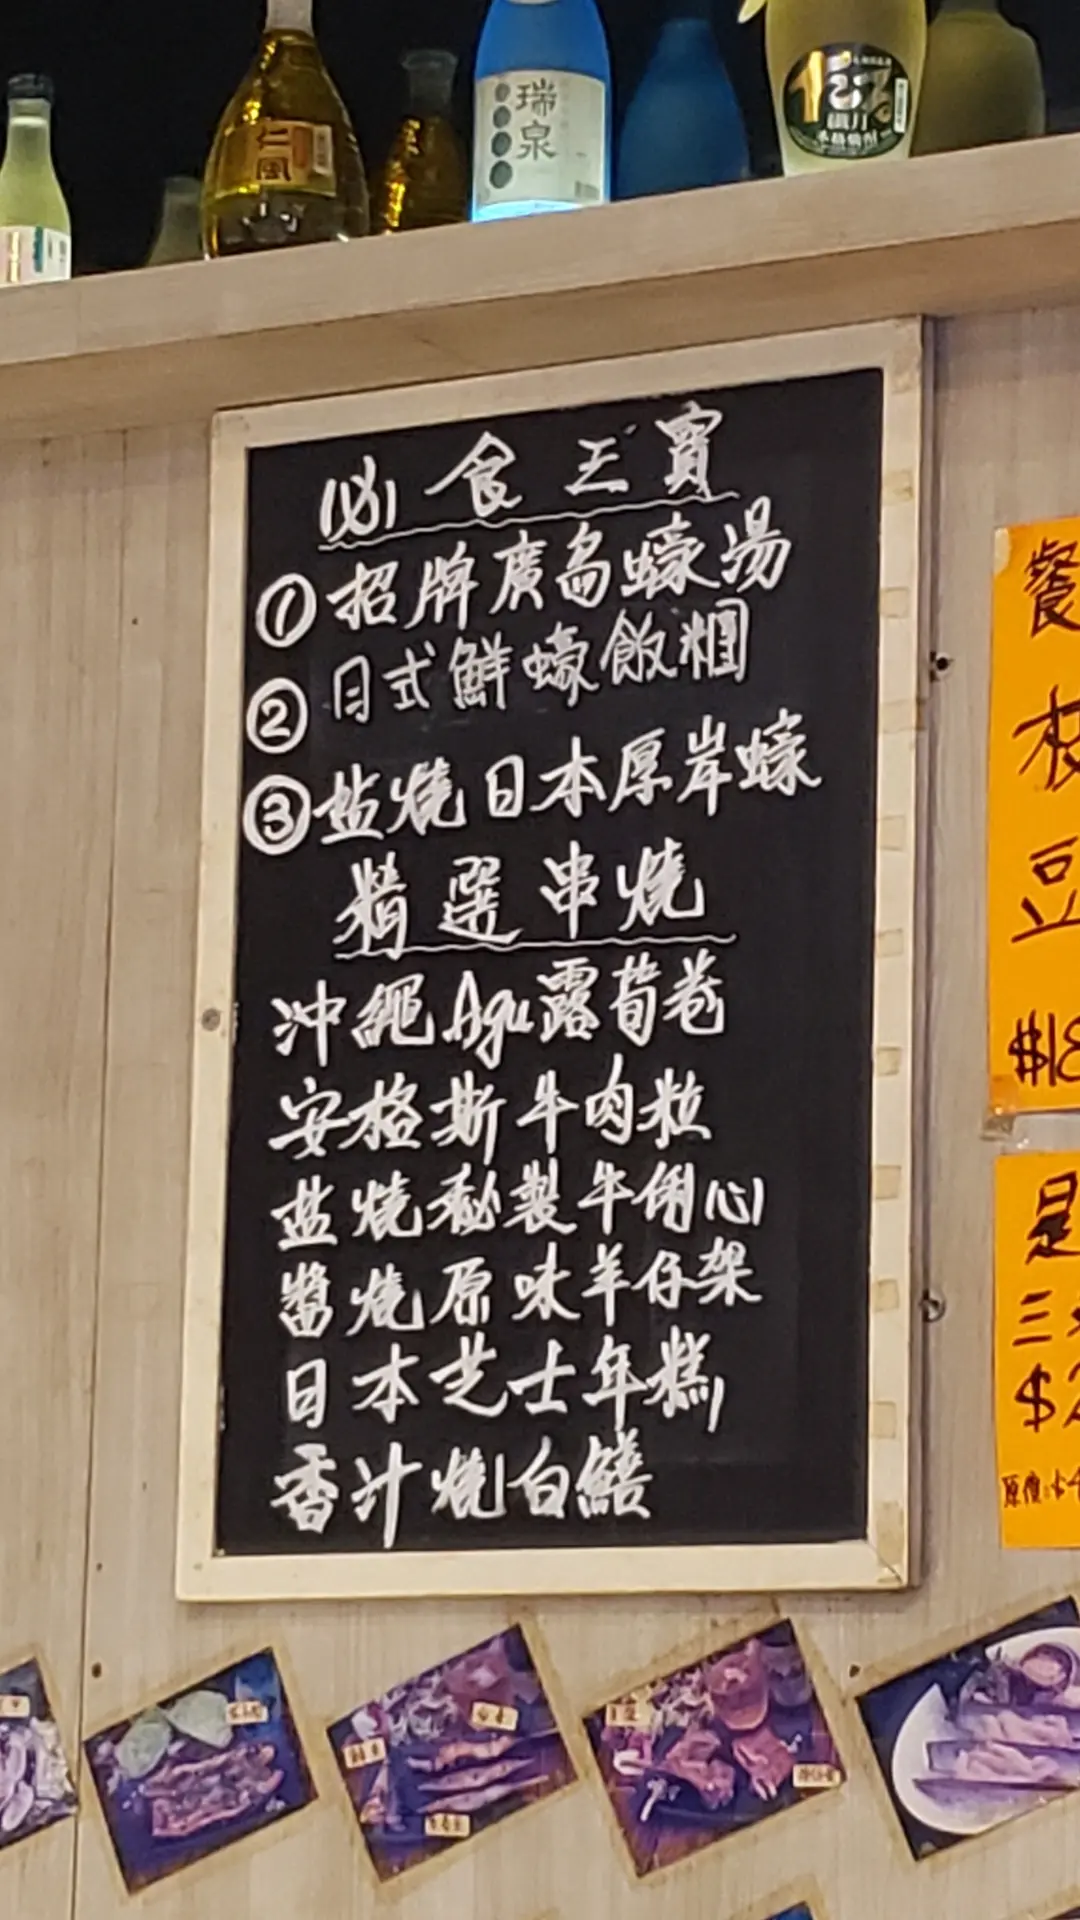 仁風
瑞泉
必食三寳
① 招牌廣島蠔湯
② 日式鮮蠔飯糰
③ 盐燒日本厚岸蠔
精選串燒
沖繩Agu露荀卷
安格斯牛肉粒
盐燒秘製牛脷心
醬燒原味羊仔架
日本芝士年糕
香汁燒白鱔
餐
枝
豆
$18
是
三
$2
原價:$4